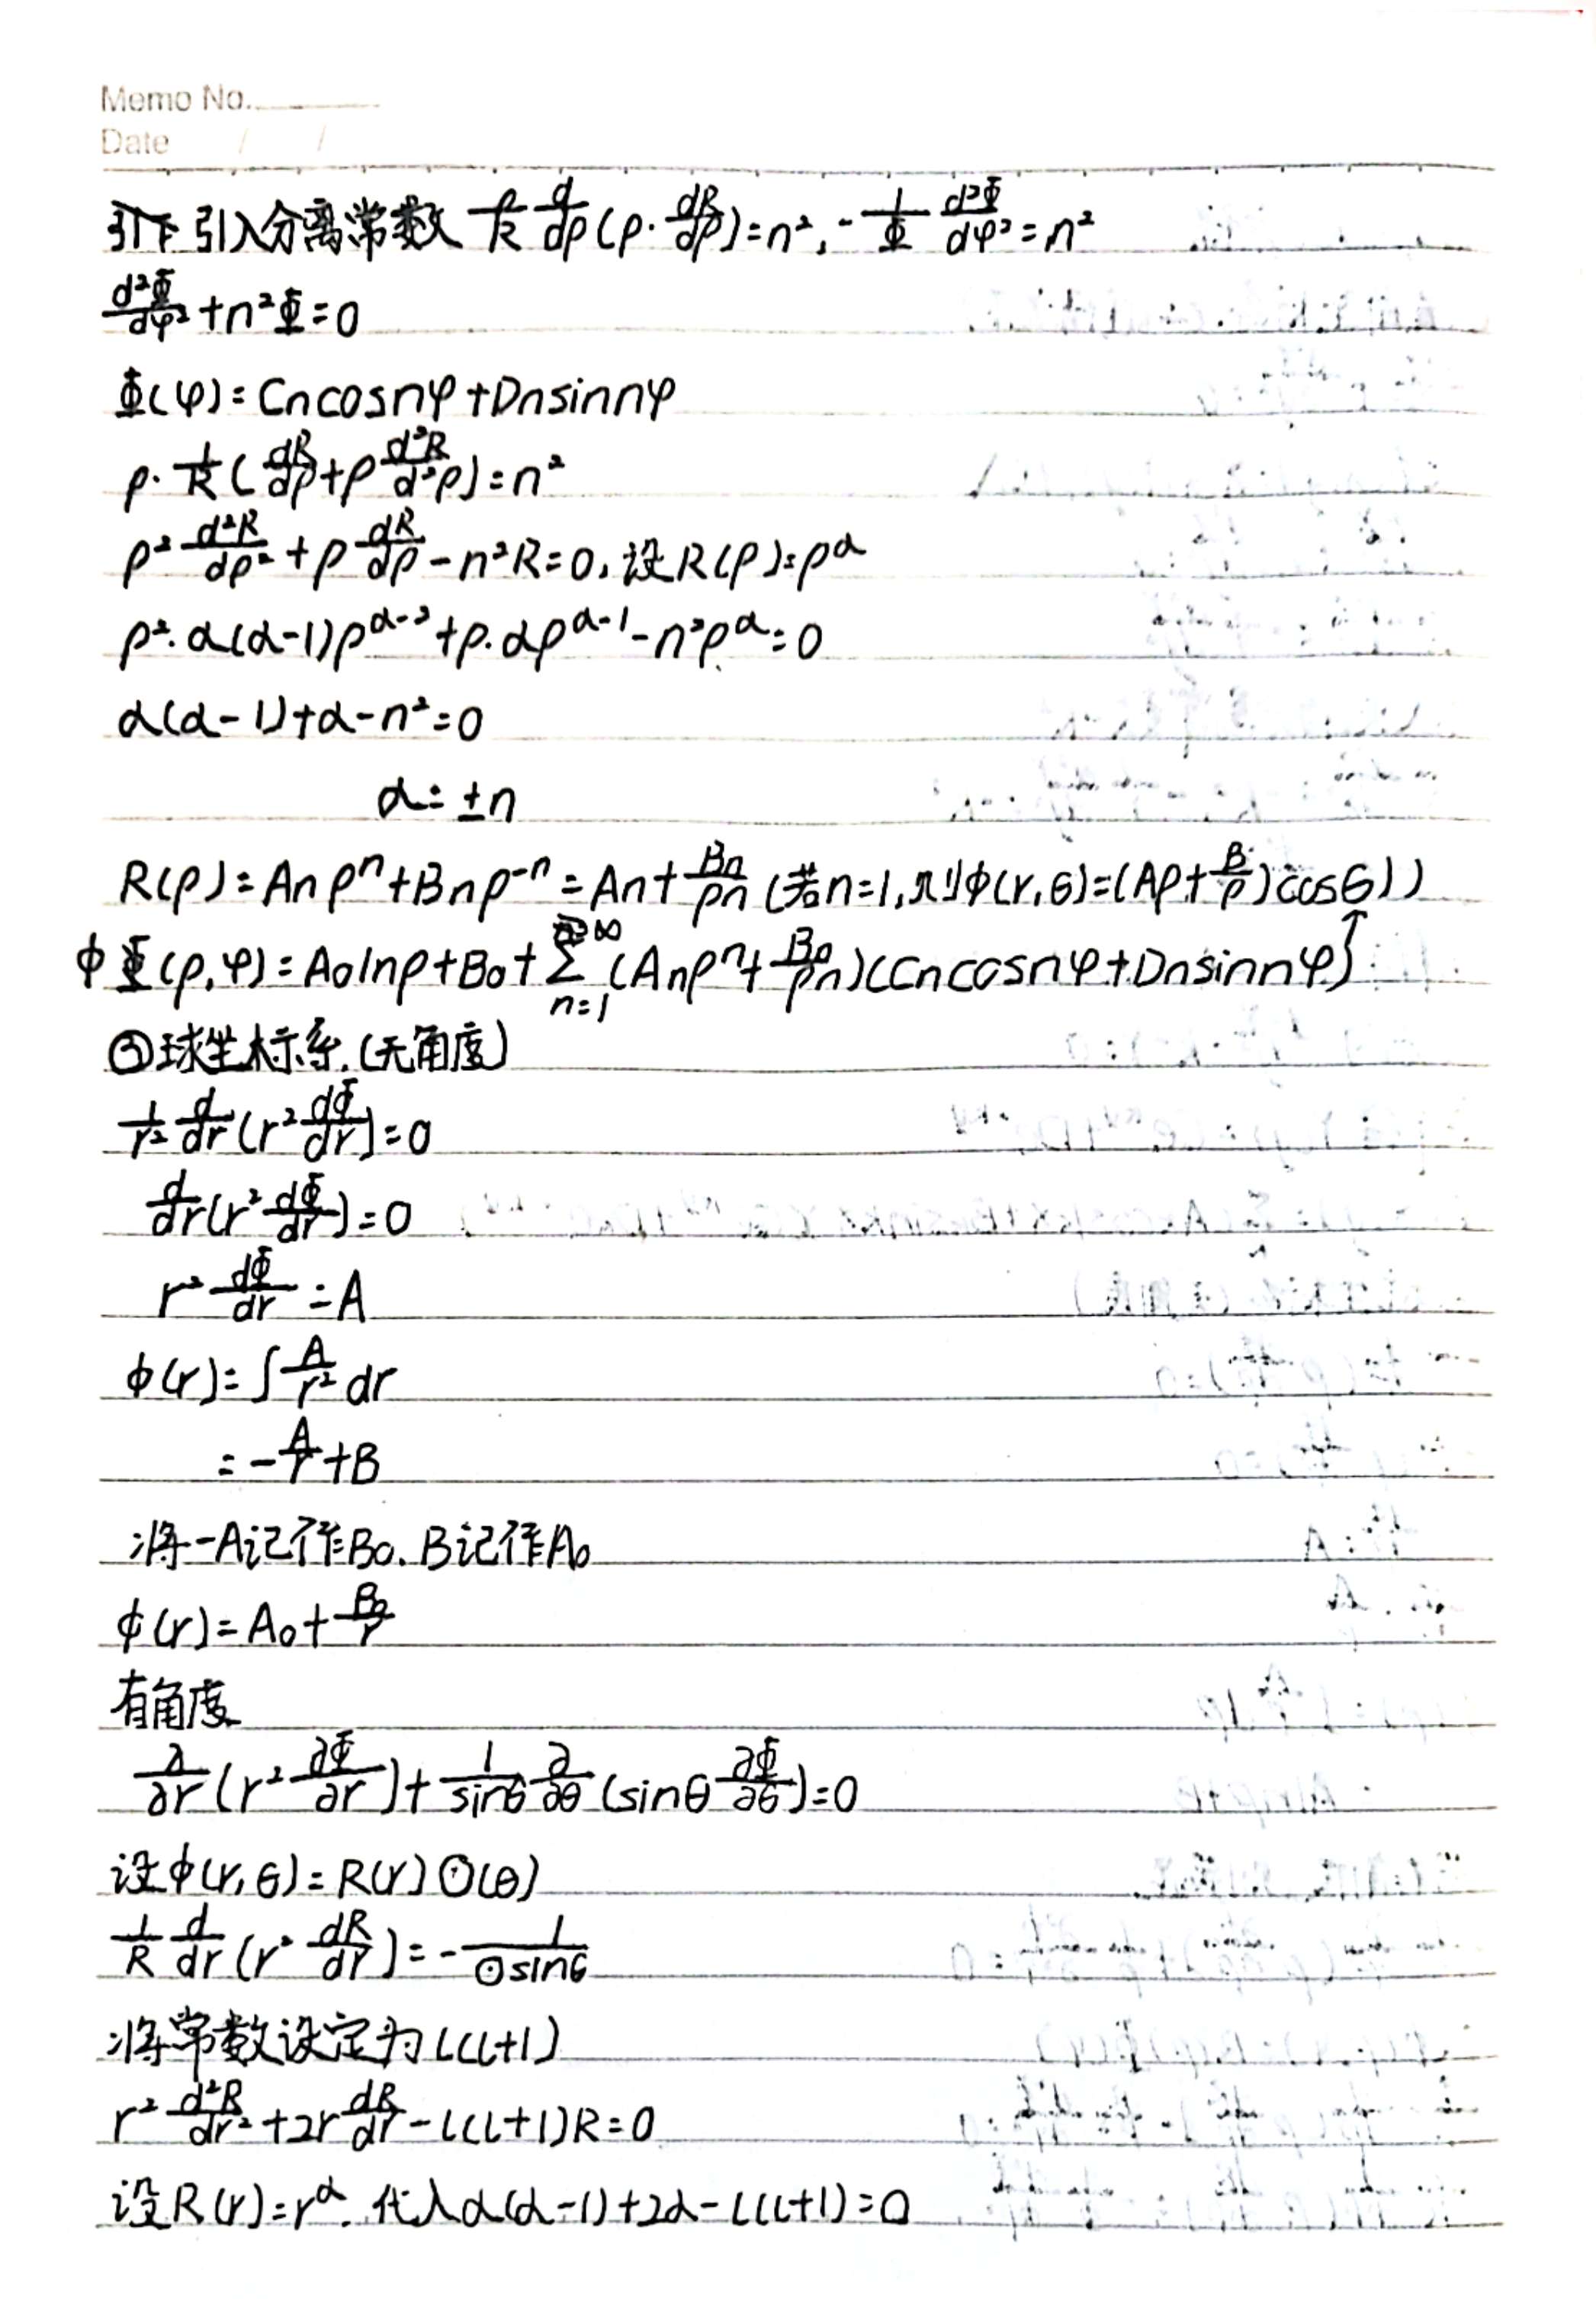 Memo No.
Date / /
引入分离常数 ρ/R d/dρ(ρ·dR/dρ)=n²,-1/Φ d²Φ/dφ²=n²
d²Φ/dφ²+n²Φ=0
Φ(φ)=Cncosnφ+Dnsinnφ
ρ·1/R(dR/dρ+ρd²R/d²ρ)=n²
ρ²d²R/dρ²+ρdR/dρ-n²R=0,设R(ρ)=ρ^α
ρ²·α(α-1)ρ^(α-2)+ρ·αρ^(α-1)-n²ρ^α=0
α(α-1)+α-n²=0
α=±n
R(ρ)=Anρ^n+Bnρ^(-n)=An+Bn/ρn(若n=1,则ϕ(r,θ)=(Aρ+B/ρ)cosθ))
ϕ(ρ,φ)=A₀lnρ+B₀+∑_(n=1)^∞(Anρ^n+Bn/ρn)(Cncosnφ+Dnsinnφ)
③球坐标系.(无角度)
1/r² d/dr(r²dΦ/dr)=0
d/dr(r²dΦ/dr)=0
r²dΦ/dr=A
ϕ(r)=∫A/r²dr
=-A/r+B
将-A记作B₀.B记作A₀
ϕ(r)=A₀+B₀/r
有角度
∂/∂r(r²∂Φ/∂r)+1/sinθ ∂/∂θ(sinθ∂Φ/∂θ)=0
设ϕ(r,θ)=R(r)Θ(θ)
1/R d/dr(r²dR/dr)=-1/Θsinθ
将常数设定为l(l+1)
r²d²R/dr²+2rdR/dr-l(l+1)R=0
设R(r)=r^α.代入α(α-1)+2α-l(l+1)=0